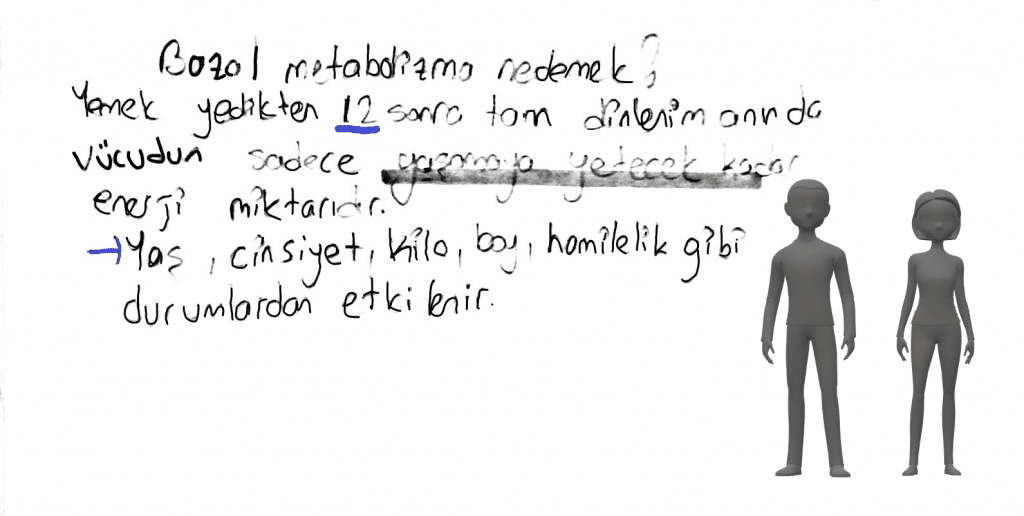 Bazal metabolizma nedemek?
Yemek yedikten 12 sonra tam dinlenim anında
vücudun sadece yaşamaya yetecek kadar
enerji miktarıdır.
→ Yaş, cinsiyet, kilo, boy, hamilelik gibi
durumlardan etkilenir.